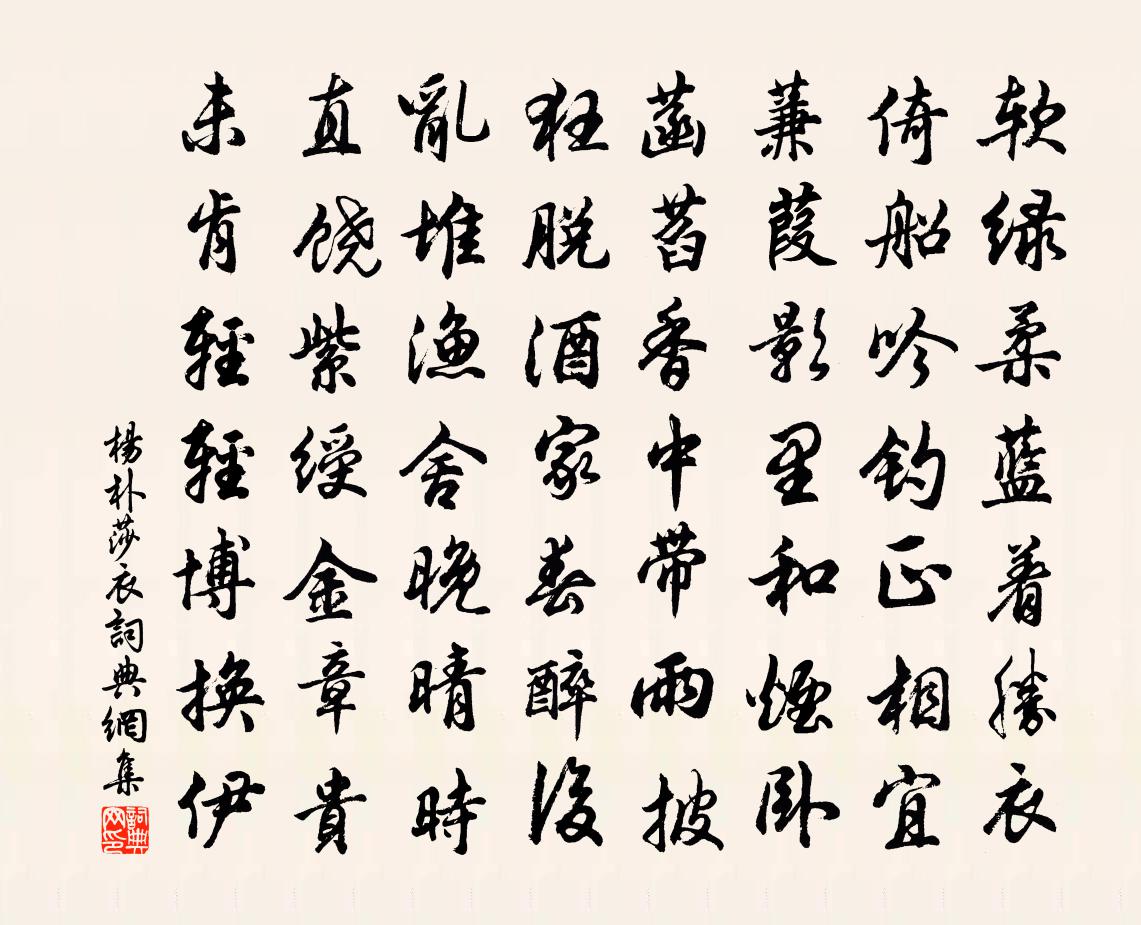 软绿柔蓝着胜衣
倚船吟钓正相宜
蒹葭影里和烟卧
菡萏香中带雨披
狂脱酒家春醉后
乱堆渔舍晚晴时
直饶紫绶金章贵
未肯轻轻博换伊
楊朴莎衣詞典網集
詞典网印